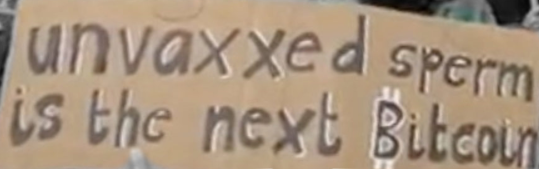 unvaxxed sperm
is the next Bitcoin